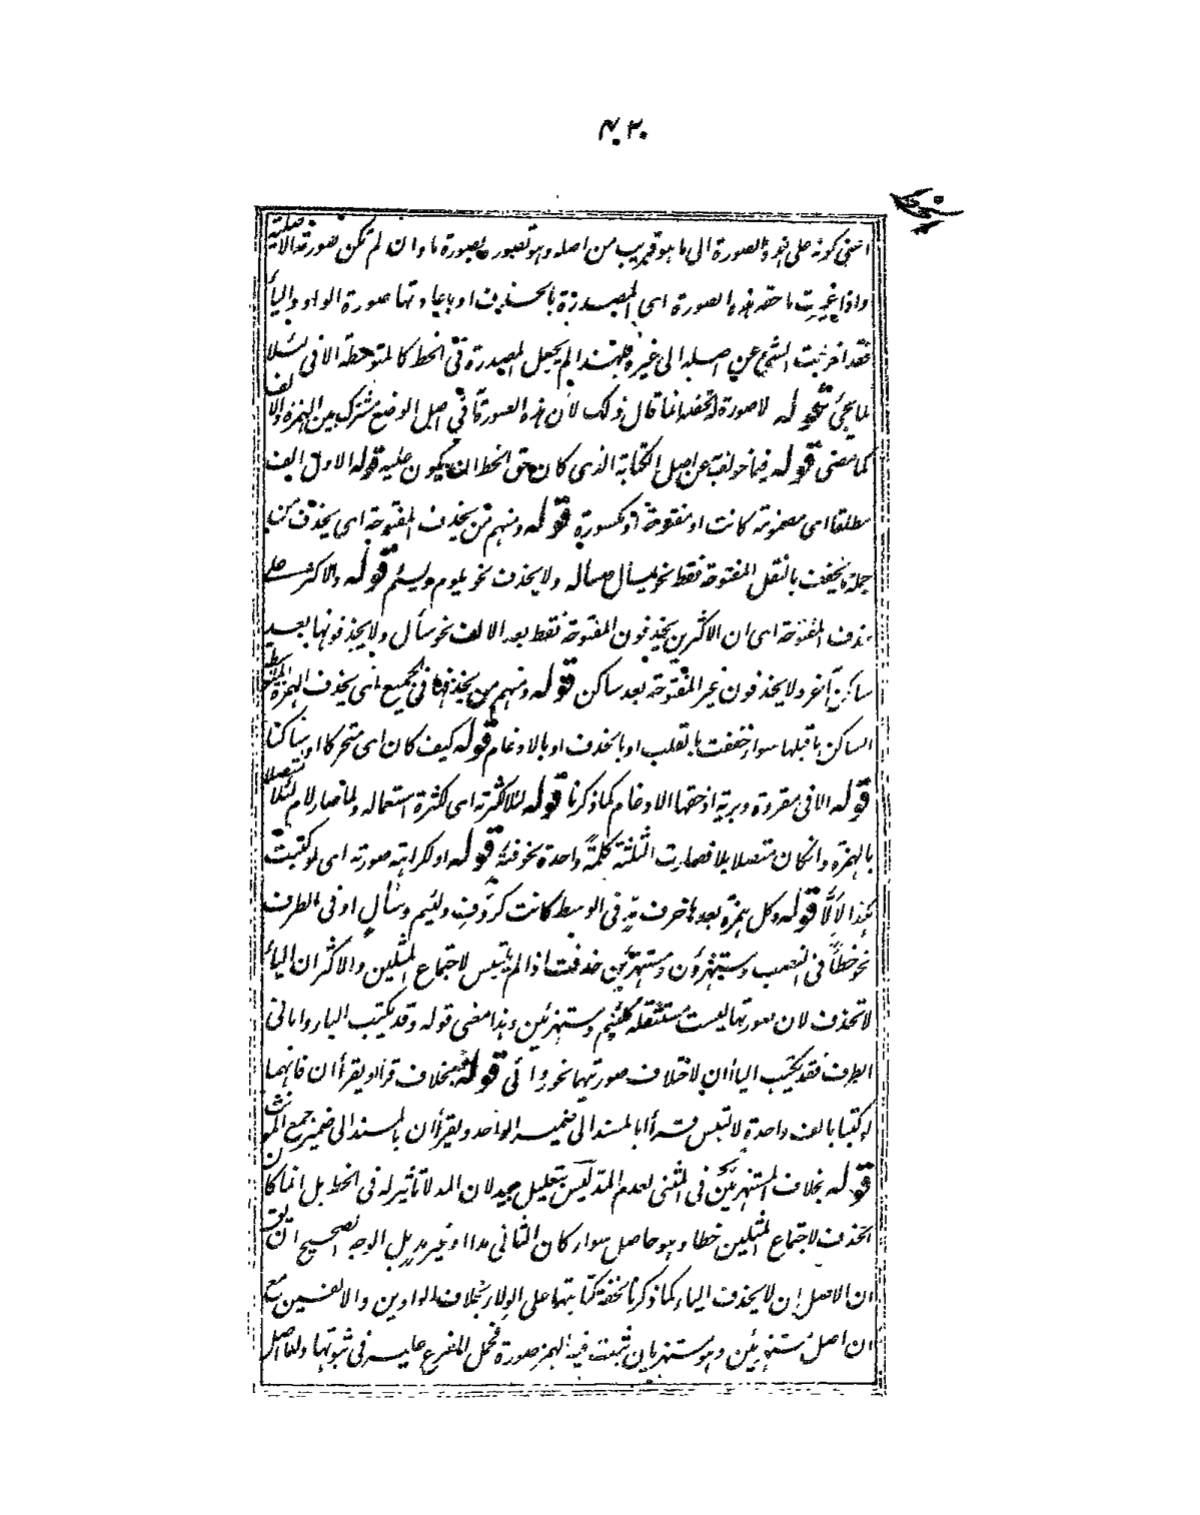 ٤٠٣
اعنى كونه على هذه الصورة الى ما هو قريب من اصله وهو تصوره بصورة ما وان لم تكن صورته الاصلية
واذا غيرت ما حقه هذه الصورة اى المصدرة بالحذف او باعادتها صورة الواو والياء
فقد اخرجت الشئ عن اصله الى غيره فلهذا لم يجعل المصدرة فى الخط كالمتوسطة الا فى لئلا
لما يجئ قوله لا صورة له تخصه انما قال ذلك لان هذه الصورة فى اصل الوضع مشترك بين الهمزة والالف
كما مضى قوله فيما خولف عن اصل الكتابة الذى كان حق الخط ان يكون عليه قوله الاول الف
مطلقا اى مضمومة كانت او مفتوحة او مكسورة قوله ومنهم من يحذف المفتوحة اى يحذف من
جملة ما يخفف بالنقل المفتوحة فقط نحو يسأل ومسأله ولا يحذف نحو يلوم ويسئم قوله والاكثر على
حذف المفتوحة اى ان الاكثرين يحذفون المفتوحة فقط بعد الالف نحو سأل ولا يحذفونها بعد
ساكن آخر ولا يحذفون غير المفتوحة بعد ساكن قوله ومنهم من يحذفها فى الجميع اى يحذف الهمزة المتوسطة
الساكن ما قبلها سواء خففت بالقلب او بالحذف او بالادغام قوله كيف كان اى متحركا او ساكنا
قوله الا فى مقروة وبرية اذ حقها الادغام كما ذكرنا قوله لئلا لكثرته اى لكثرة استعماله ولما صار لام لئلا متصلا
بالهمزة وان كان متصلا بلا فصارت الثلثة كلمة واحدة نحو فئة قوله او لكراهة صورته اى لو كتبت
هكذا لاَلاَّ قوله وكل همزة بعدها حرف مد فى الوسط كانت كرؤف ولئيم وسأال او فى الطرف
نحو خطأ فى النصب ومستهزؤن ومستهزئين حذفت اذا لم يلتبس لاجتماع المثلين والاكثر ان الياء
لا تحذف لان صورتها ليست مستثقلة كلئيم ومستهزئين وهذا معنى قوله وقد يكتب الياء واما فى
الطرف فقد يكتب الياآن لاختلاف صورتيهما نحو ردائى قوله بخلاف قرأا ويقرأان فانهما
لو كتبا بالف واحدة لالتبس قرأا بالمسند الى ضمير الواحد ويقرأان بالمسند الى ضمير جمع المؤنث
قوله بخلاف المستهزئين فى المثنى لعدم المد ليس بتعليل جيد لان المد لا تأثير له فى الخط بل انما كان
الحذف لاجتماع المثلين خطا وهو حاصل سواء كان الثانى مدا او غير مد بل الوجه الصحيح ان يقال
ان الاصل ان لا يحذف الياء كما ذكرنا لخفة كتابتها على الولاء بخلاف الواوين والالفين مع
ان اصل مستهزئين وهو مستهزيان ثبتت فيه للهمزة صورة فحمل الفرع عليه فى ثبوتها